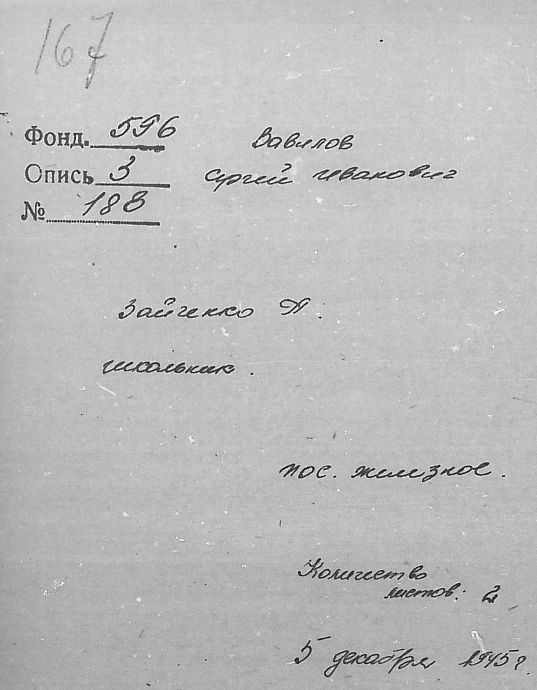 167
Фонд. 596 Вавилов
Опись 3 Сергей Иванович
№ 188
Зайченко Т.
школьник.
пос. Железное.
Количество
листов: 2
5 декабря 1945 г.